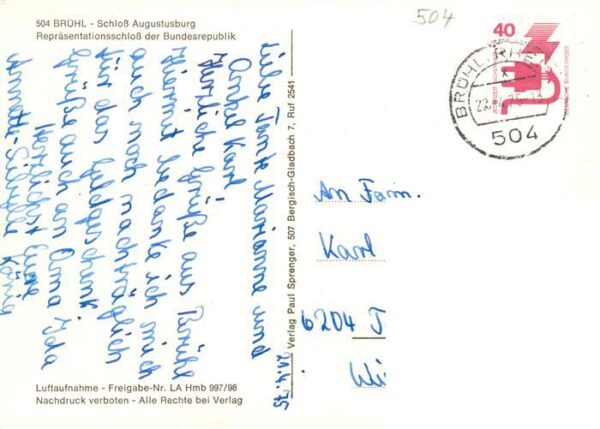 504 BRÜHL - Schloß Augustusburg
Repräsentationsschloß der Bundesrepublik
21.4.75
Liebe Tante Marianne und
Onkel Karl!
Herzliche Grüße aus Brühl
Hiermit bedanke ich mich
auch noch nachträglich
für das Geldgeschenk.
Grüße auch an Oma Ida
Herzlichst Eure
Annette-Sibylle König
Luftaufnahme - Freigabe-Nr. LA Hmb 997/98
Nachdruck verboten - Alle Rechte bei Verlag
Verlag Paul Sprenger, 507 Bergisch-Gladbach 7, Ruf 2541
504
40
JEDERZEIT SICHERHEIT
DEUTSCHE BUNDESPOST
BRÜHL, RHEINL
504
An Fam.
Karl
6204 T
Wi